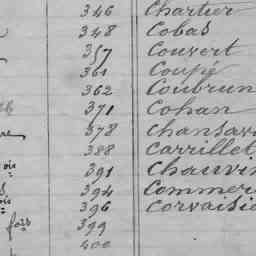 346 Chartier
348 Cobas
357 Couvert
361 Coupé
362 Coubrun
371 Cohan
378 Chansav
388 Carrillet
ois 391 Chauvin
394 Commer
ois 396 Corvaisi
fois 399
400